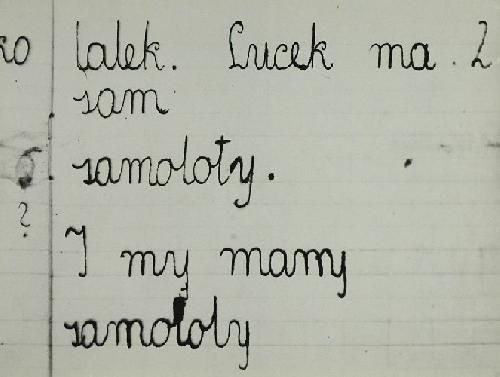 ko lalek. Lucek ma 2
sam
samoloty.
?
I my mamy
samoloty